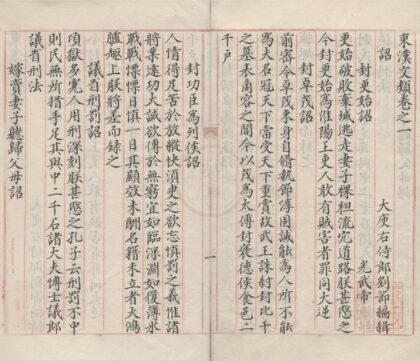 東漢文類卷之一
大庾右侍郎劉節編輯
詔
封更始詔
光武帝
更始破敗棄城逃走妻子裸袒流宂道路朕甚愍之
今封更始為淮陽王吏人敢有賊害者罪同大逆
封卓茂詔
前密令卓茂束身自脩執節淳固誠能為人所不能
為夫名冠天下當受天下重賞故武王誅紂封比干
之墓表商容之閭今以茂為太傅封褒德侯食邑二
千戶
一
封功臣為列侯詔
人情得足苦於放縱快須臾之欲忘慎罰之義惟諸
將業遠功大誠欲傳於無窮宜如臨深淵如履薄冰
戰戰慄慄日慎一日其顯效未酬名籍未立者大鴻
臚趣上朕將差而錄之
議省刑罰詔
頃獄多寃人用刑深刻朕甚愍之孔子云刑罰不中
則民無所措手足其與中二千石諸大夫博士議郎
議省刑法
嫁賣妻子聽歸父母詔